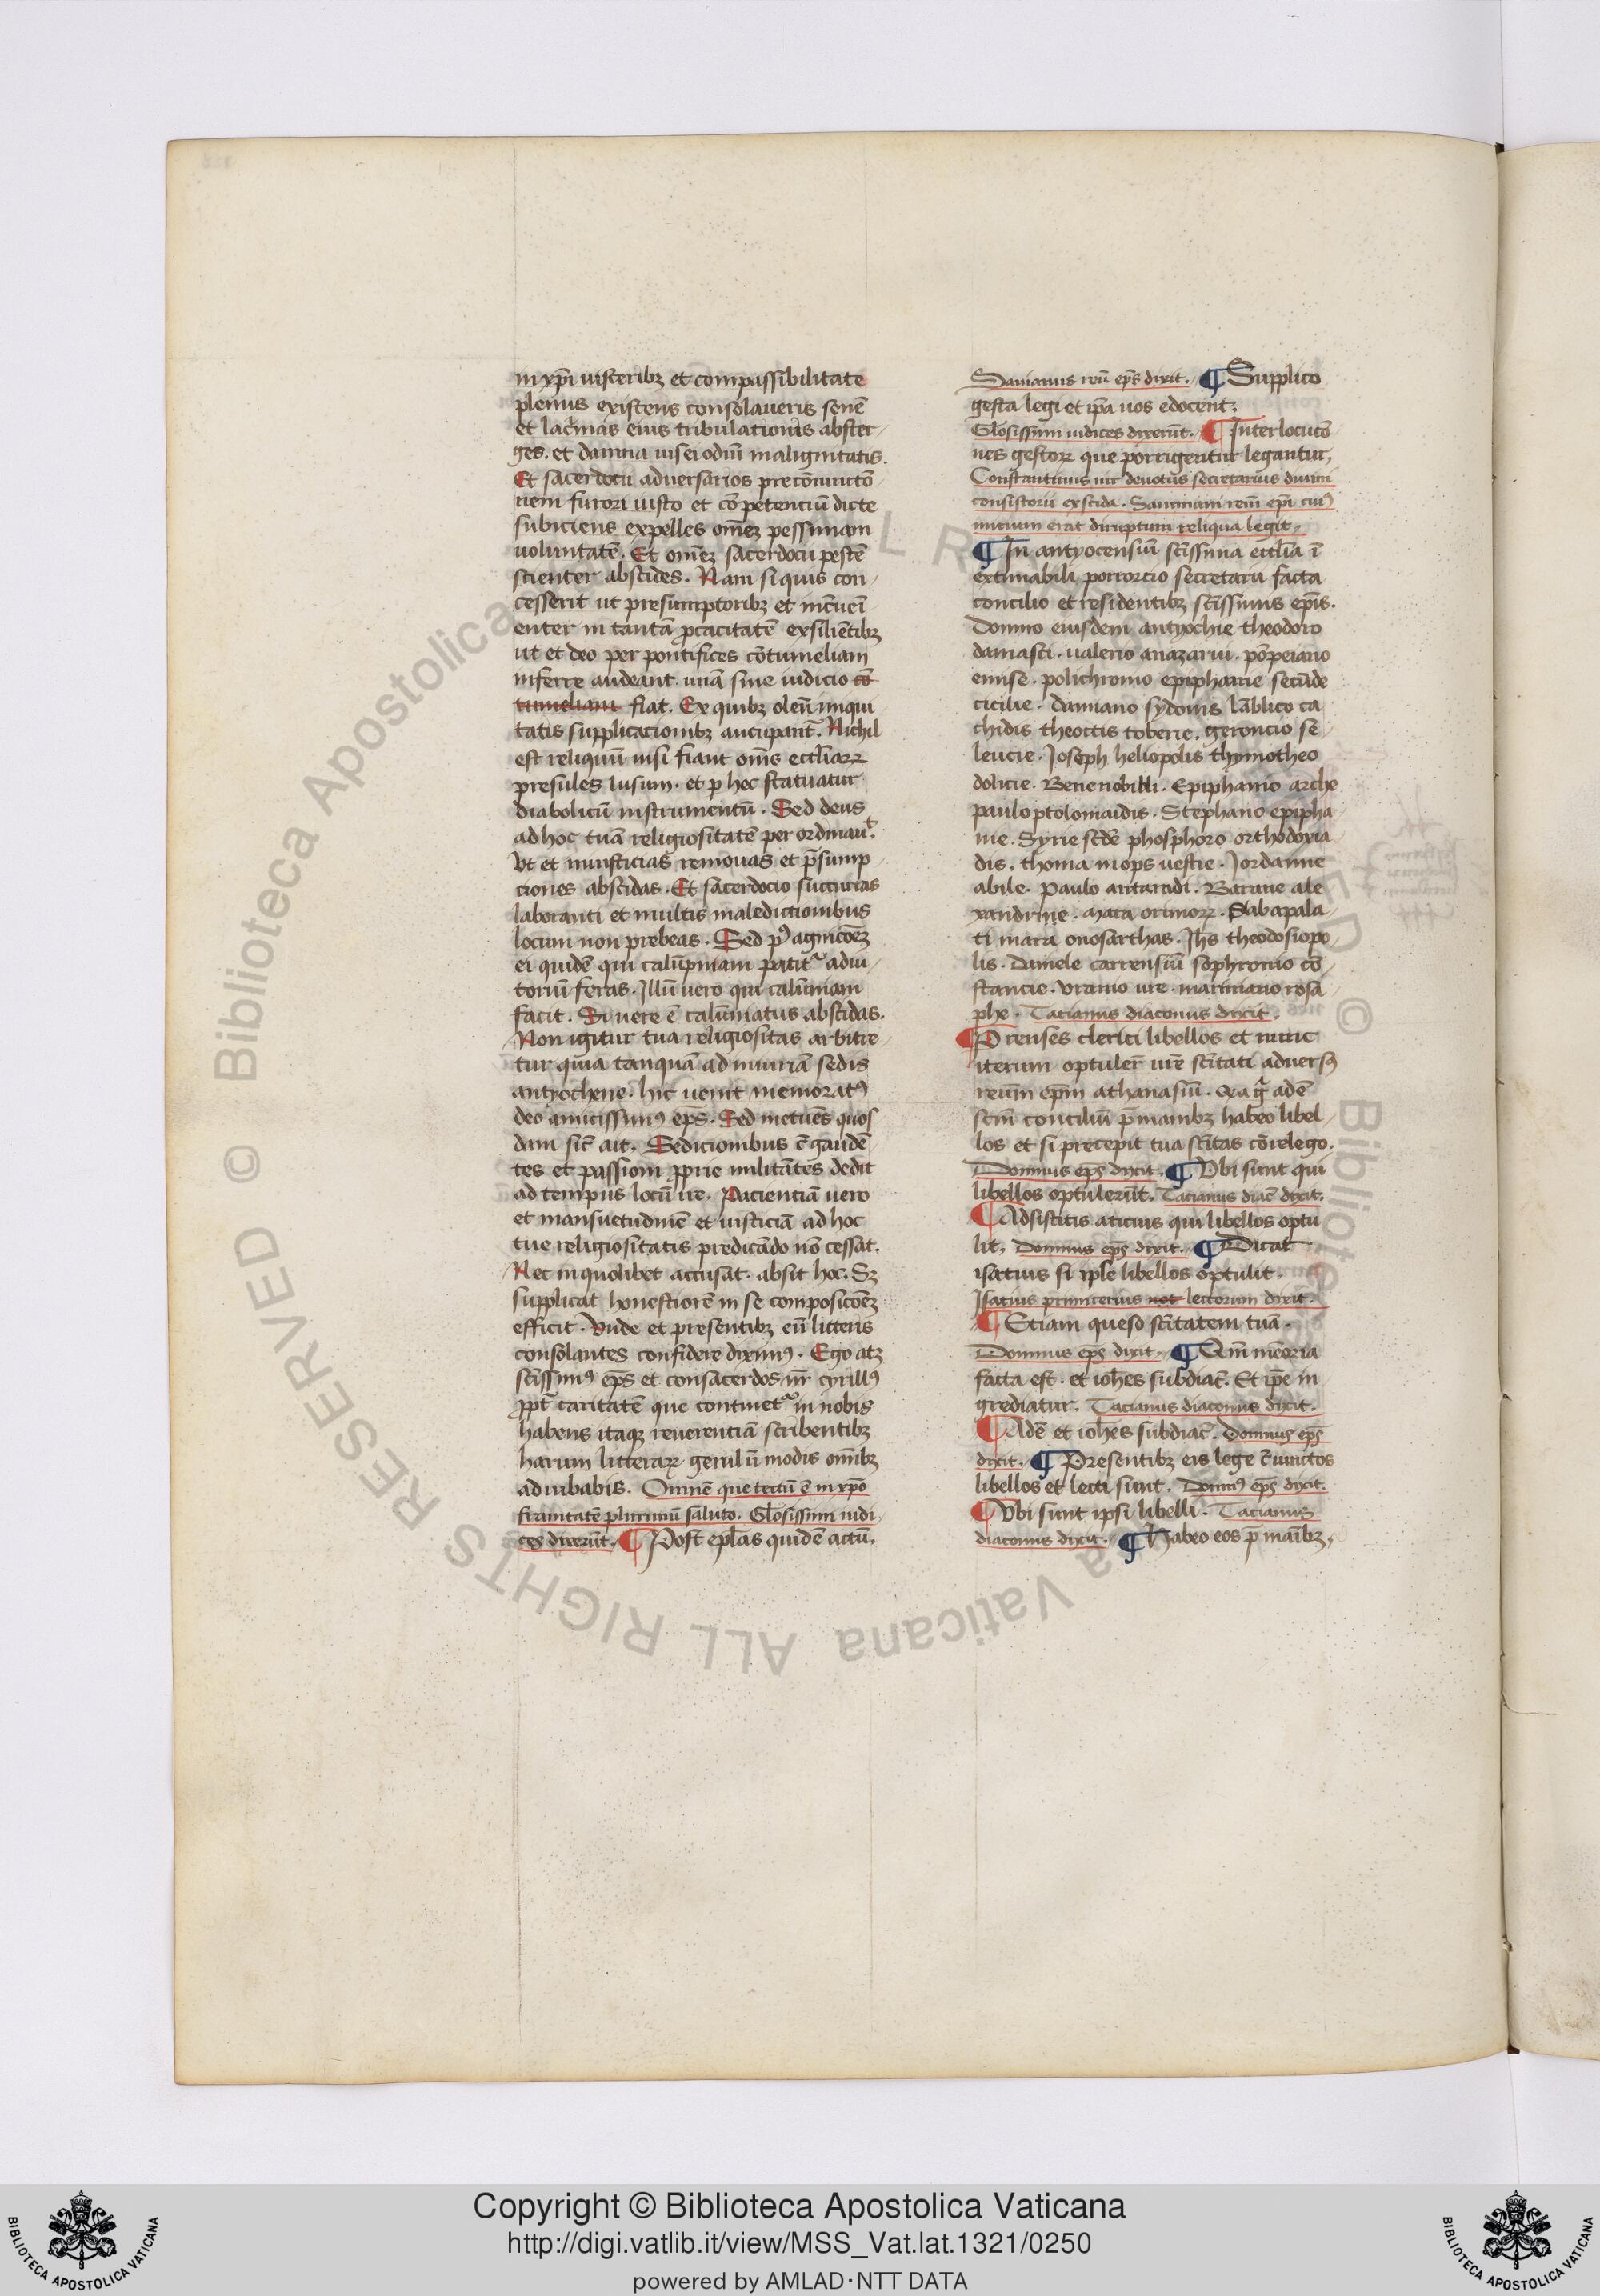 in xpi uisceribz et compassibilitate
plenus existens consolaueris senē
et lacrimas eius tribulationis abster-
ges. et damna uisei odiūi malignitatis.
Et sacerdotii aduersarios precōiunctō
nem furori iusto et cōpetenciū dicte
subiciens expelles omēz pessimam
uoluntatē. Et omēz sacerdocii pestē
scienter abscides. Nam si quis con-
cesserit ut presumptoribz et
enter in tantā pcacitatē exsiliētibz
ut et deo per pontifices cōtumeliam
inferre audeant. unā sine iudicio cō
tumeliam fiat. Ex quibz oleū iniqui
tatis supplicacionibz aucupant. Nichil
est reliquū nisi fiant om̄s eccliarꝝ
presules lusum. et p hec statuatur
diabolicū instrumentū. Sed deus
ad hoc tuā religiositatē per ordinaut.
Vt et iniusticias remouas et p̄sump
ciones abscidas. Et sacerdocio succurras
laboranti et multis maledictionibus
locum non prebeas. Sed p9 agnicōez
ei quidē qui calūpniam patit adiu-
toriū feras. Illū uero qui calūniam
facit. Si uere ē calūniatus abscidas.
Non igitur tua religiositas arbitre
tur quia tanquā ad iniuriā sedis
antyochene. hic uenit memorat9
deo amicissim9 ep̄s. Sed metuēs quos
dam sic ait. Sedicionibus c̄ gaudē
tes et passioni pprie militātes dedit
ad tempus locū ire. Pacienciā uero
et mansuetudinē et iusticiā ad hoc
tue religiositatis predicādo nō cessat.
Nec in quolibet accusat. absit hoc. Sz
supplicat honestiorē in se composicōez
efficit. Unde et presentibz eū litteris
consolantes confidere diximus. Ego atz
sc̄issim9 ep̄s et consacerdos nr̄ cyrill9
ppt caritatē que continet in nobis
habens itaqz reuerentiā scribentibz
harum litterarꝝ gerulū modis om̄ibz
adiubabis. Omnē que tecū ē in xpo
fr̄aternitatē plurimū saluto. Glosissimi iudi-
ces dixerūt. ¶ Post eplas quidē actū.
Sauianus reū ep̄s dixit. ¶ Supplico
gesta legi et ip̄a uos edocent.
Glosissimi iudices dixerūt. ¶ Interlocutō
nes gestorꝝ que porrigentur legantur.
Constantinus uir deuotus secretarius diuini
consistorii exscida. Sauiniani reūi ep̄i cui9
inicium erat diruptum reliqua legit.
¶ In antyocensiū sc̄issima ecclia ī
extimabili porrorcio secretarii facta
concilio et residentibz sc̄issimis ep̄is.
Domno eiusdem antyochie theodoro
damasci. ualerio anazarui. pōpeiano
emise. polichronio epiphanie secūde
cicilie. damiano sydonis lāblico ca
chidis theoctis toberie. geroncio se
leucie. Joseph heliopolis thymotheo
dolicie. Benenobibli. Epiphanio arche
paulo ptolomaidis. Stephano epipha
nie. Syrie scdē phosphoro orthodoxia
dis. thoma mops uestie. Jordanne
abile. Paulo antaradi. Barane ale
xandrine. Mara orimorꝝ. Sabapala
ti mara onosarthas. Jhs theodosiopo
lis. daniele carrensiū sophronio cō
stancie. uranio ure. mariniano rosa
phe. Tacianus diaconus dixit.
¶ Prenses clerici libellos et nunc
iterum optuler̄ ure sc̄itati aduers9
reūm ep̄m athanasiū. Qa g adē
scm̄ conciliū p̄ manibz habeo libel-
los et si precepit tua sc̄itas cōrelego.
Domnus ep̄s dixit. ¶ Vbi sunt qui
libellos optulerūt. Tacianus diac̄ dixit.
¶ Adsistitis aticius qui libellos optu
lit. Domnus ep̄s dixit. ¶ Dicat
isacius si ipse libellos optulit.
Isacius primicerius not lectorum dixit.
¶ Etiam queso sc̄itatem tuā.
Domnus ep̄s dixit. ¶ Qm̄ mēoria
facta est. et ioh̄es subdiac̄. Et ip̄e in
grediatur. Tacianus diaconus dixit.
¶ Adē et ioh̄es subdiac̄. Domnus ep̄s
dixit. ¶ Presentibz eis lege c̄iunctos
libellos et lecti sunt. Domn9 ep̄s dixit.
¶ Vbi sunt ipsi libelli. Tacianus
diaconus dixit. ¶ Habeo eos p̄ māibz.
© Biblioteca Apostolica Vaticana ALL RIGHTS RESERVED
Copyright © Biblioteca Apostolica Vaticana
http://digi.vatlib.it/view/MSS_Vat.lat.1321/0250
powered by AMLAD·NTT DATA
BIBLIOTECA APOSTOLICA VATICANA
BIBLIOTECA APOSTOLICA VATICANA